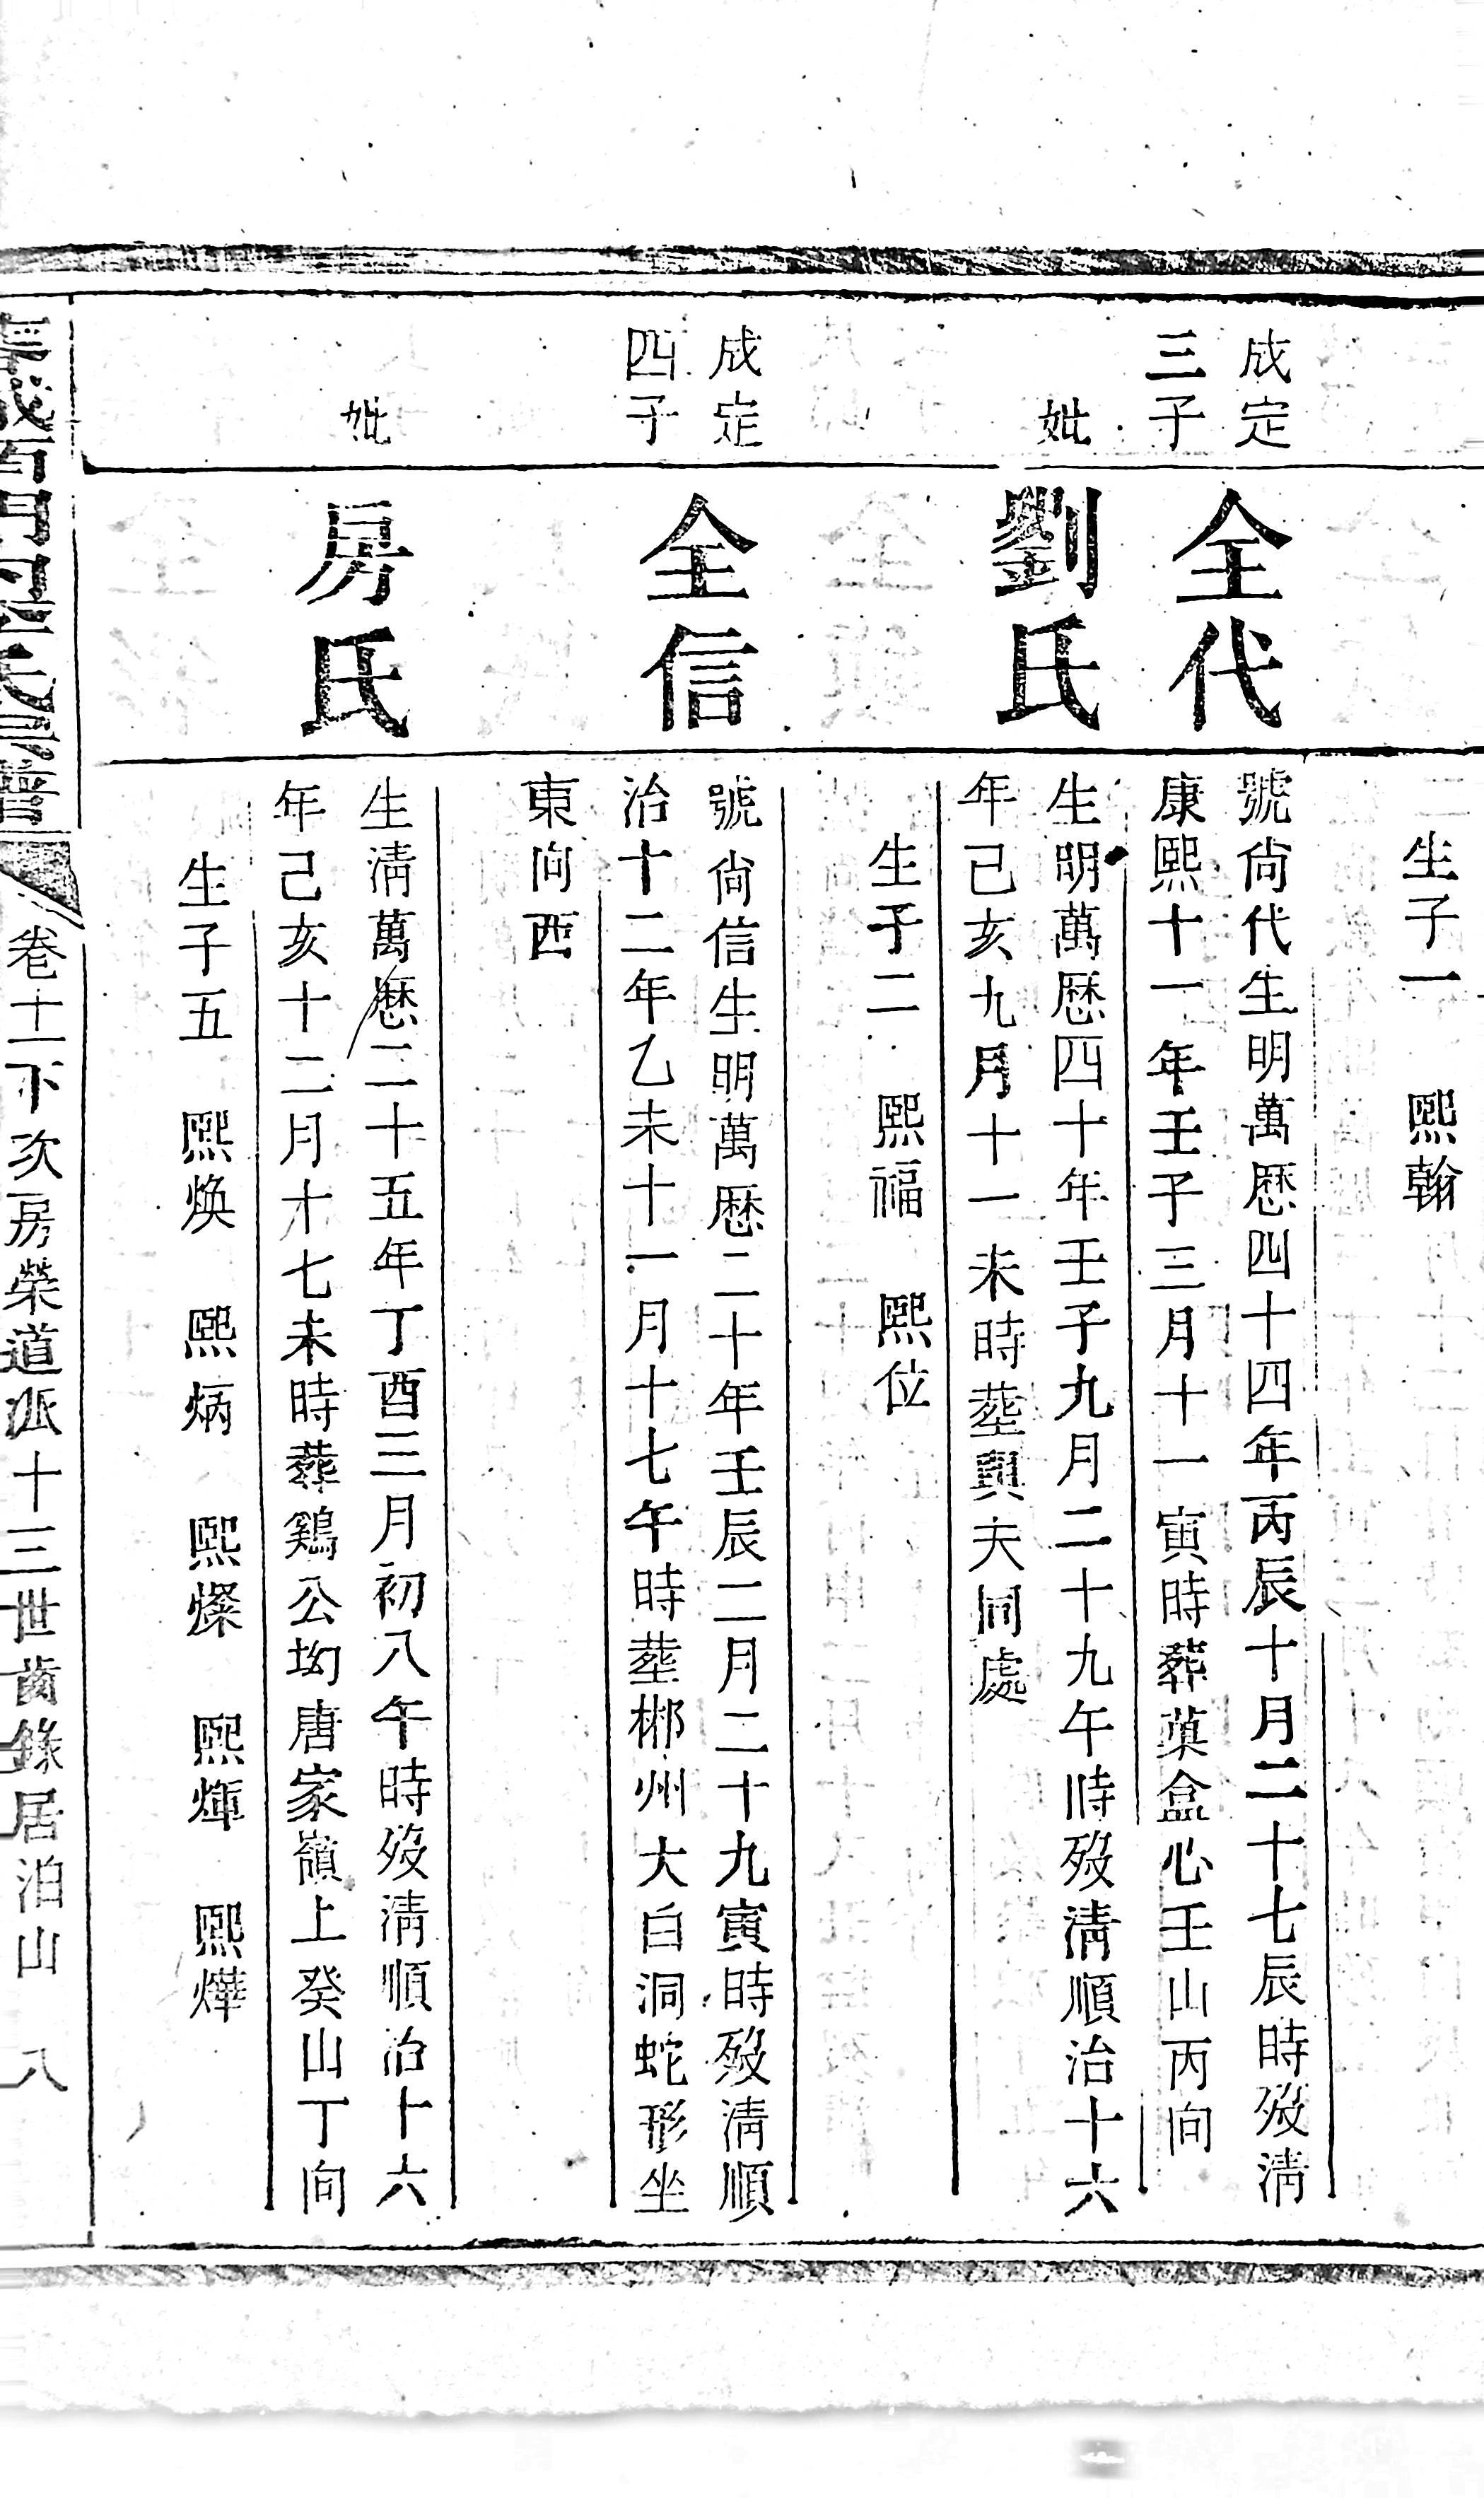 生子一　熙翰
成定
三子
全代
號尙代生明萬厯四十四年丙辰十月二十七辰時歿淸
康熙十一年壬子三月十一寅時葬藥盒心壬山丙向
妣
劉氏
生明萬厯四十年壬子九月二十九午時歿淸順治十六
年己亥九月十一未時塟與夫同處
生子二　熙福　熙位
成定
四子
全信
號尙信生明萬厯二十年壬辰二月二十九寅時歿淸順
治十二年乙未十一月十七午時塟郴州大白洞蛇形坐
東向西
妣
房氏
生淸萬厯二十五年丁酉三月初八午時歿淸順治十六
年己亥十二月十七未時葬鷄公坳唐家嶺上癸山丁向
生子五　熙煥　熙炳　熙燦　熙煇　熙燁
卷十一下次房榮道派十三世齒錄居泊山　八